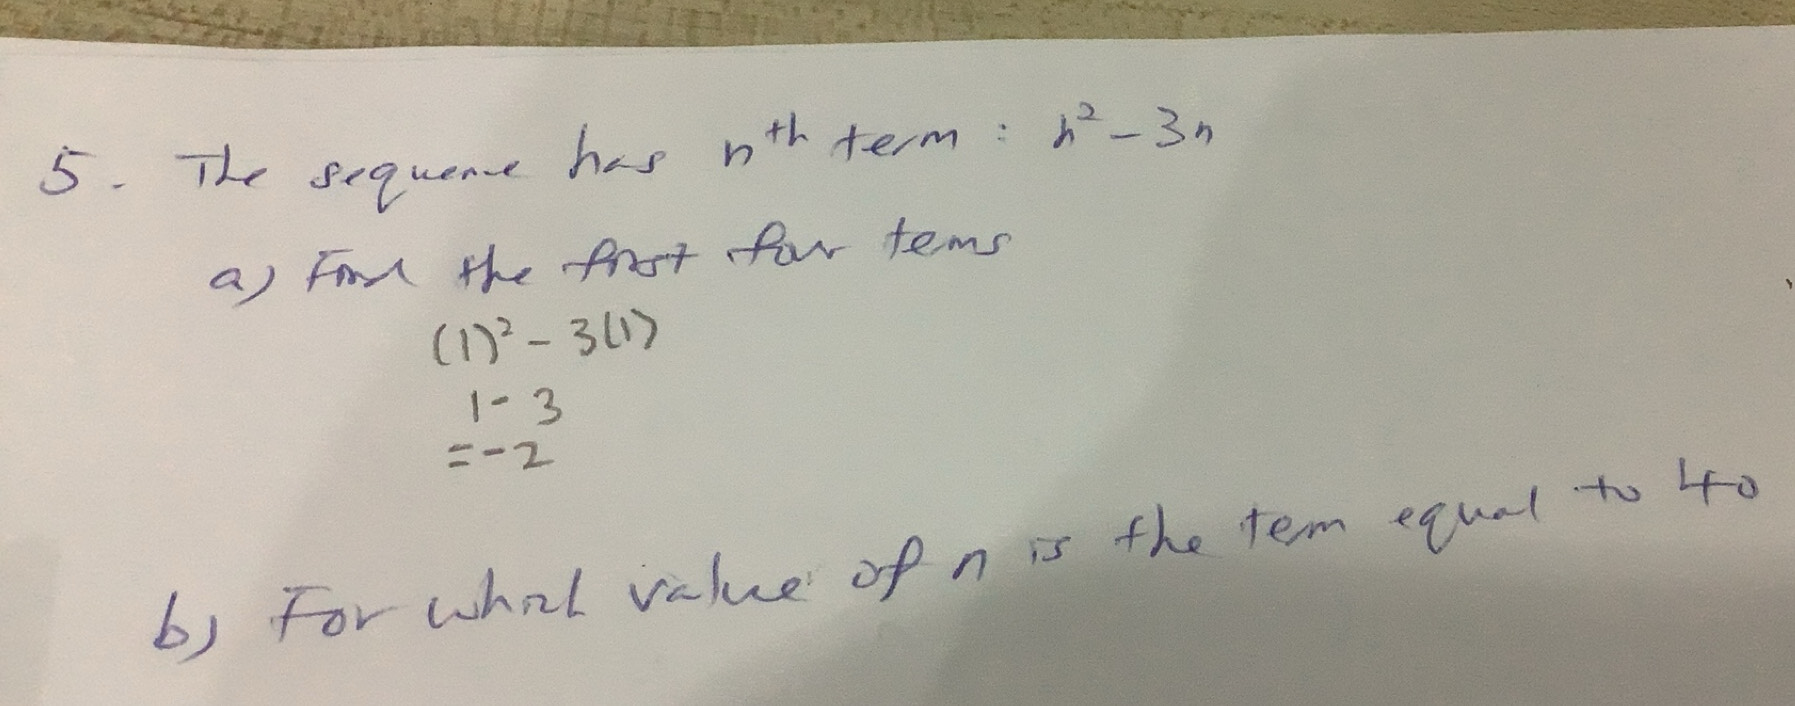 5. The sequence has nth term : n² - 3n
a) Find the first four terms
(1)² - 3(1)
1 - 3
= -2
b) For which value of n is the term equal to 40